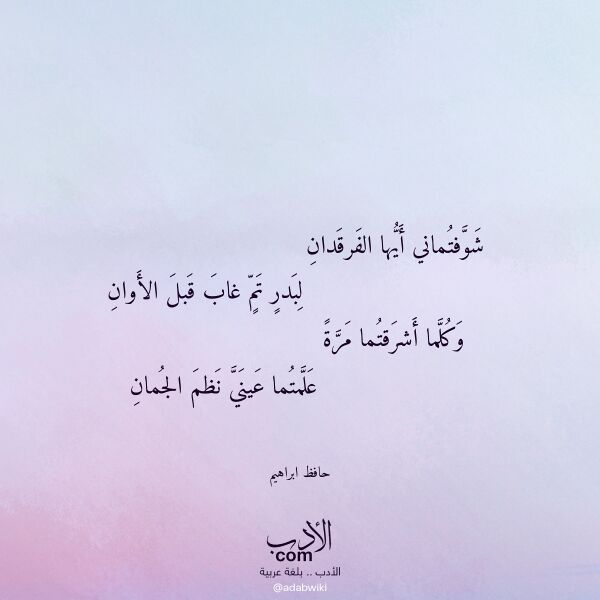 شَوَّفتُماني أَيُّها الفَرقَدانِ
لِبَدرِ تَمٍّ غابَ قَبلَ الأَوانِ
وَكُلَّما أَشرَقتُما مَرَّةً
عَلَّمتُما عَينَيَّ نَظمَ الجُمانِ
حافظ ابراهيم
الأدب
.com
الأدب .. بلغة عربية
@adabwiki